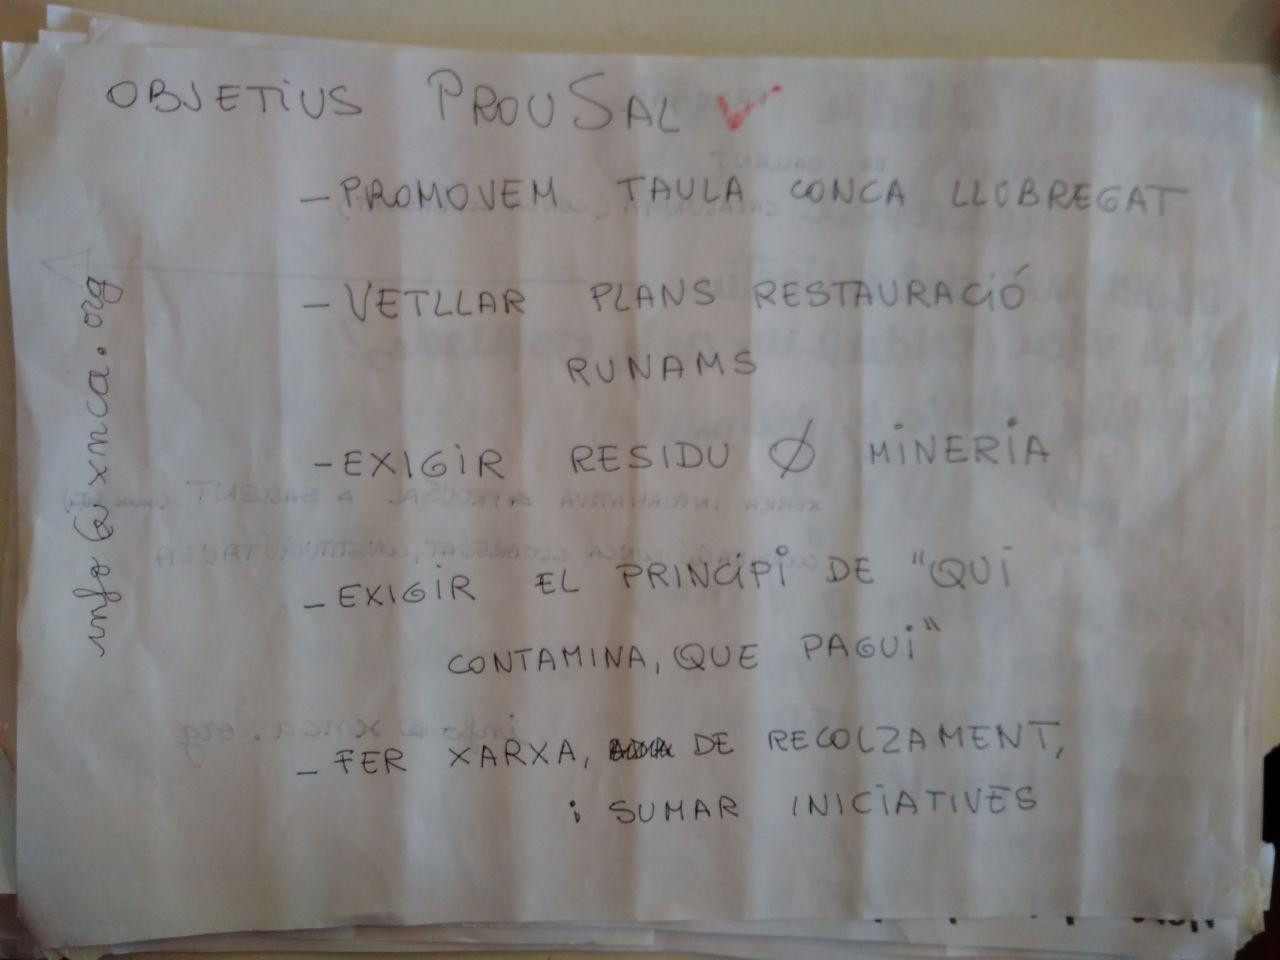 OBJETIUS PROUSAL ✓
– PROMOVEM TAULA CONCA LLOBREGAT
– VETLLAR PLANS RESTAURACIÓ
RUNAMS
– EXIGIR RESIDU Ø MINERIA
– EXIGIR EL PRINCIPI DE "QUI
CONTAMINA, QUE PAGUI"
– FER XARXA, DE RECOLZAMENT,
i SUMAR INICIATIVES
info@xnca.org